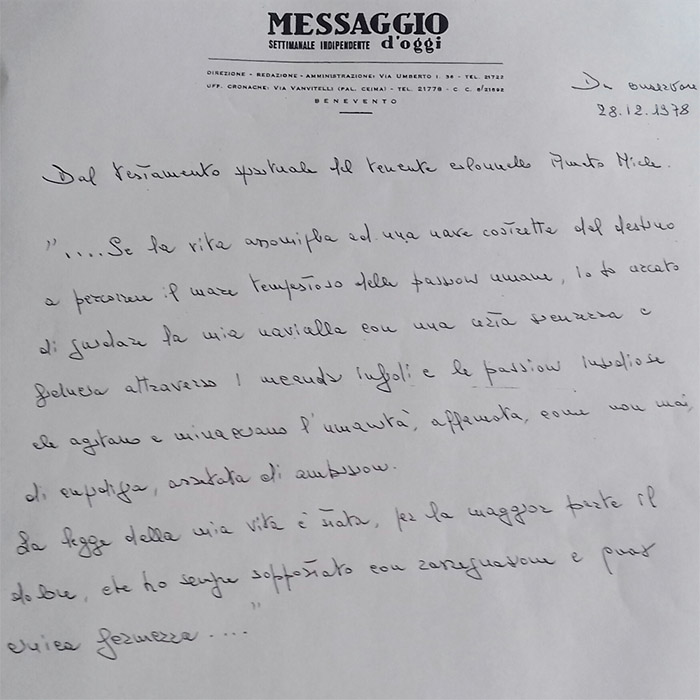 MESSAGGIO
SETTIMANALE INDIPENDENTE d'oggi
DIREZIONE - REDAZIONE - AMMINISTRAZIONE: VIA UMBERTO I. 36 - TEL. 21722
UFF. CRONACHE: VIA VANVITELLI (PAL. CEIMA) - TEL. 21778 - C. C. 8/21692
BENEVENTO
Da
28.12.1978
Dal testamento spirituale del tenente colonnello Miche.
"....Se la vita assomiglia ad una nave costretta dal destino
a percorrere il mare tempestoso delle passioni umane, io ho cercato
di guidare la mia navicella con una certa sicurezza e
fiducia attraverso i meandri infidi e le passioni insidiose
che agitano e minacciano l'umanità, affamata, come non mai,
di cupidigia, assetata di ambizioni.
La legge della mia vita è stata, per la maggior parte il
dolore, che ho sempre sopportato con rassegnazione e quasi
stoica fermezza ...."